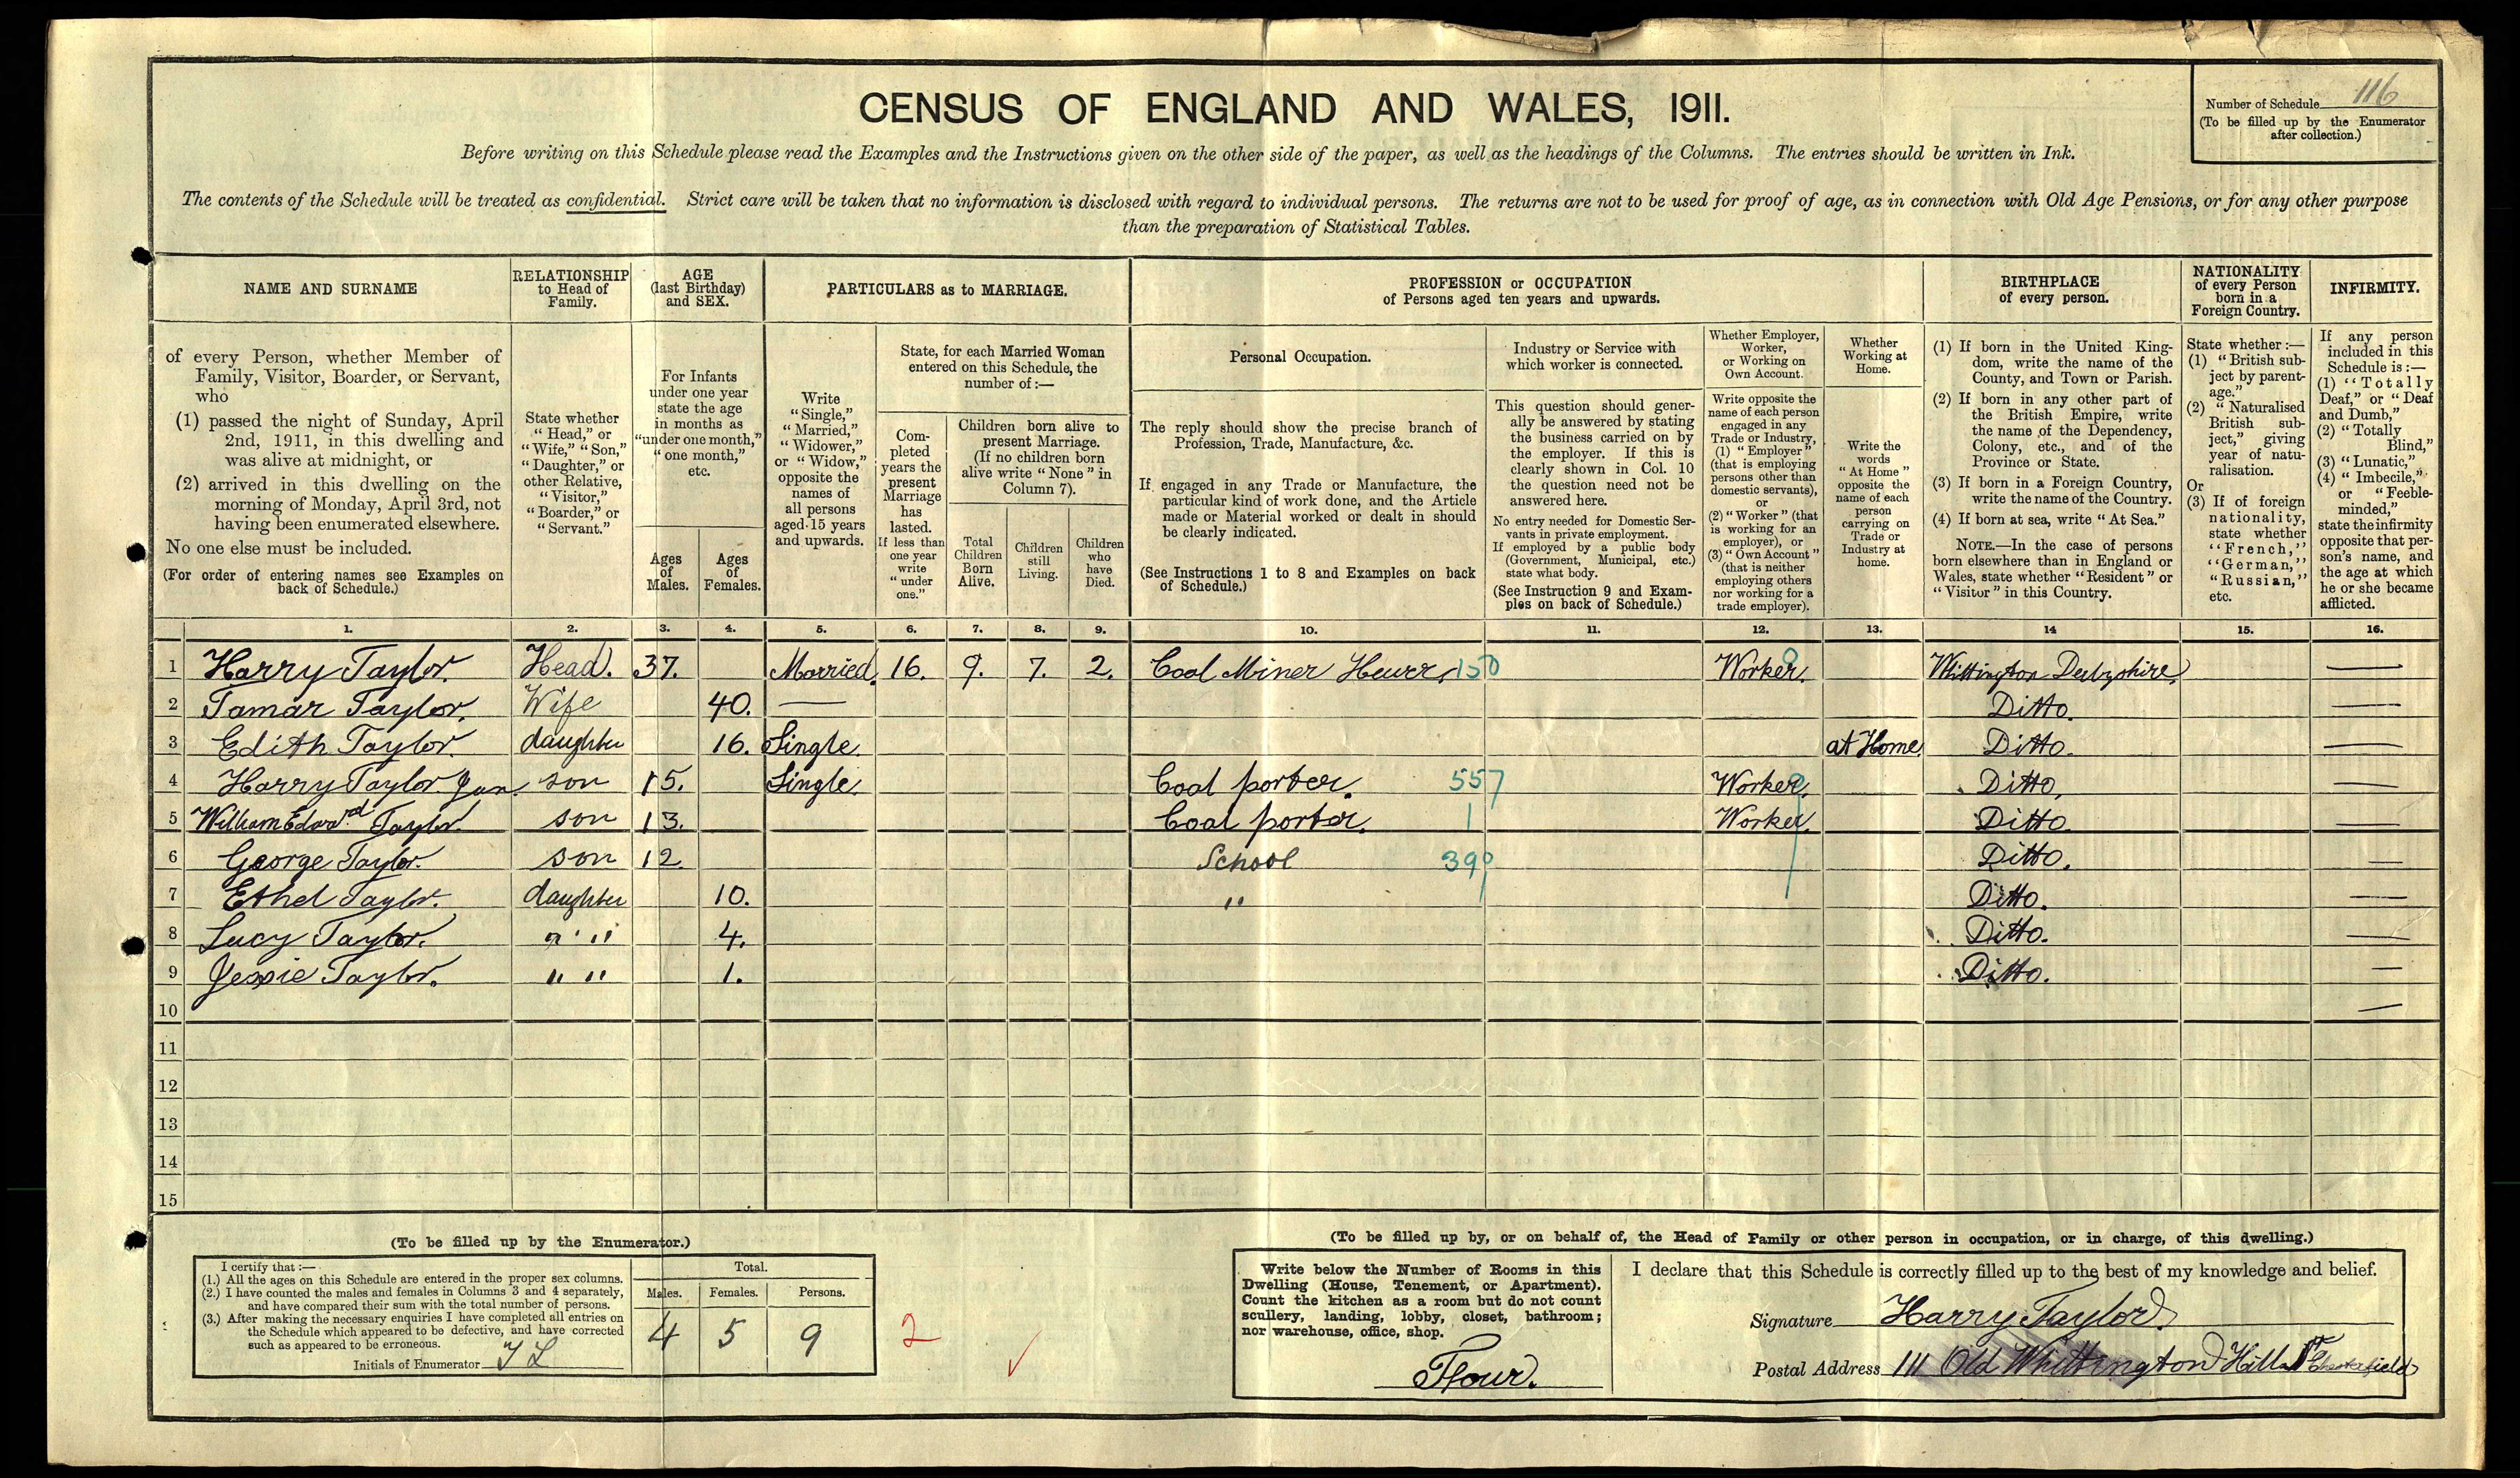 CENSUS OF ENGLAND AND WALES, 1911.
Number of Schedule 116
(To be filled up by the Enumerator
after collection.)
Before writing on this Schedule please read the Examples and the Instructions given on the other side of the paper, as well as the headings of the Columns. The entries should be written in Ink.
The contents of the Schedule will be treated as confidential. Strict care will be taken that no information is disclosed with regard to individual persons. The returns are not to be used for proof of age, as in connection with Old Age Pensions, or for any other purpose
than the preparation of Statistical Tables.
NAME AND SURNAME
of every Person, whether Member of
Family, Visitor, Boarder, or Servant,
who
(1) passed the night of Sunday, April
2nd, 1911, in this dwelling and
was alive at midnight, or
(2) arrived in this dwelling on the
morning of Monday, April 3rd, not
having been enumerated elsewhere.
No one else must be included.
(For order of entering names see Examples on
back of Schedule.)
RELATIONSHIP
to Head of
Family.
State whether
"Head," or
"Wife," "Son,"
"Daughter," or
other Relative,
"Visitor,"
"Boarder," or
"Servant."
AGE
(last Birthday)
and SEX.
For Infants
under one year
state the age
in months as
"under one month,"
"one month,"
etc.
Ages
of
Males.
Ages
of
Females.
PARTICULARS as to MARRIAGE.
Write
"Single,"
"Married,"
"Widower,"
or "Widow,"
opposite the
names of
all persons
aged 15 years
and upwards.
State, for each Married Woman
entered on this Schedule, the
number of :—
Com-
pleted
years the
present
Marriage
has
lasted.
If less than
one year
write
"under
one."
Children born alive to
present Marriage.
(If no children born
alive write "None" in
Column 7).
Total
Children
Born
Alive.
Children
still
Living.
Children
who
have
Died.
PROFESSION or OCCUPATION
of Persons aged ten years and upwards.
Personal Occupation.
The reply should show the precise branch of
Profession, Trade, Manufacture, &c.
If engaged in any Trade or Manufacture, the
particular kind of work done, and the Article
made or Material worked or dealt in should
be clearly indicated.
(See Instructions 1 to 8 and Examples on back
of Schedule.)
Industry or Service with
which worker is connected.
This question should gener-
ally be answered by stating
the business carried on by
the employer. If this is
clearly shown in Col. 10
the question need not be
answered here.
No entry needed for Domestic Ser-
vants in private employment.
If employed by a public body
(Government, Municipal, etc.)
state what body.
(See Instruction 9 and Exam-
ples on back of Schedule.)
Whether Employer,
Worker,
or Working on
Own Account.
Write opposite the
name of each person
engaged in any
Trade or Industry,
(1) "Employer"
(that is employing
persons other than
domestic servants),
or
(2) "Worker" (that
is working for an
employer), or
(3) "Own Account"
(that is neither
employing others
nor working for a
trade employer).
Whether
Working at
Home.
Write the
words
"At Home"
opposite the
name of each
person
carrying on
Trade or
Industry at
home.
BIRTHPLACE
of every person.
(1) If born in the United King-
dom, write the name of the
County, and Town or Parish.
(2) If born in any other part of
the British Empire, write
the name of the Dependency,
Colony, etc., and of the
Province or State.
(3) If born in a Foreign Country,
write the name of the Country.
(4) If born at sea, write "At Sea."
NOTE.—In the case of persons
born elsewhere than in England or
Wales, state whether "Resident" or
"Visitor" in this Country.
NATIONALITY
of every Person
born in a
Foreign Country.
State whether :—
(1) "British sub-
ject by parent-
age."
(2) "Naturalised
British sub-
ject," giving
year of natu-
ralisation.
Or
(3) If of foreign
nationality,
state whether
"French,"
"German,"
"Russian,"
etc.
INFIRMITY.
If any person
included in this
Schedule is :—
(1) "Totally
Deaf," or "Deaf
and Dumb,"
(2) "Totally
Blind,"
(3) "Lunatic,"
(4) "Imbecile,"
or "Feeble-
minded,"
state the infirmity
opposite that per-
son's name, and
the age at which
he or she became
afflicted.
1. 2. 3. 4. 5. 6. 7. 8. 9. 10. 11. 12. 13. 14 15. 16.
1 Harry Taylor. Head. 37. Married. 16. 9. 7. 2. Coal Miner Hewer. 150 Worker. 0 Whittington Derbyshire. —
2 Tamar Taylor. Wife 40. — Ditto. —
3 Edith Taylor. daughter 16. Single. at Home Ditto. —
4 Harry Taylor. Jun. son 15. Single. Coal porter. 557 Worker. Ditto. —
5 William Edward Taylor. son 13. Coal porter. Worker. Ditto. —
6 George Taylor. son 12 School 390 Ditto. —
7 Ethel Taylor. daughter 10. " Ditto. —
8 Lucy Taylor. " " 4. Ditto. —
9 Jessie Taylor. " " 1. Ditto. —
10 —
11
12
13
14
15
(To be filled up by the Enumerator.)
I certify that :—
(1.) All the ages on this Schedule are entered in the proper sex columns.
(2.) I have counted the males and females in Columns 3 and 4 separately,
and have compared their sum with the total number of persons.
(3.) After making the necessary enquiries I have completed all entries on
the Schedule which appeared to be defective, and have corrected
such as appeared to be erroneous.
Initials of Enumerator
Total.
Males. Females. Persons.
4 5 9
2
(To be filled up by, or on behalf of, the Head of Family or other person in occupation, or in charge, of this dwelling.)
Write below the Number of Rooms in this
Dwelling (House, Tenement, or Apartment).
Count the kitchen as a room but do not count
scullery, landing, lobby, closet, bathroom;
nor warehouse, office, shop.
Flour.
I declare that this Schedule is correctly filled up to the best of my knowledge and belief.
Signature Harry Taylor
Postal Address 111 Old Whittington Hill Chesterfield